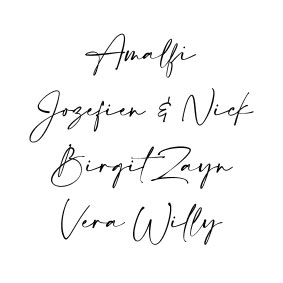 Amalfi
Jozefien & Nick
Birgit Zayn
Vera Willy